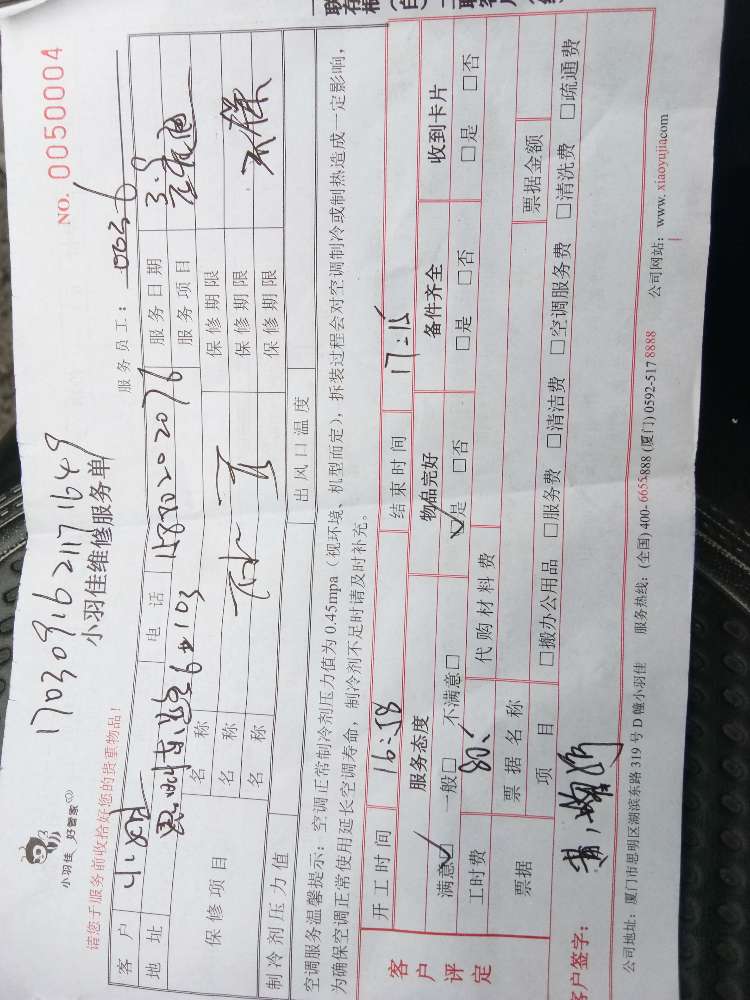 17030916211711649
小羽佳 好管家
小羽佳维修服务单
NO. 0050004
请您于服务前收拾好您的贵重物品!
服务员工: 0036
客户 电话 服务日期
地址 6#103 服务项目
保修项目 名称 保修期限
名称 保修期限
名称 保修期限
制冷剂压力值 出风口温度
空调服务温馨提示:空调正常制冷剂压力值为0.45mpa(视环境、机型而定),拆装过程会对空调制冷或制热造成一定影响,
为确保空调正常使用延长空调寿命,制冷剂不足时请及时补充。
客户评定
开工时间 16:58 结束时间 17:15
服务态度 物品完好 备件齐全 收到卡片
满意☑ 一般□ 不满意□ ☑是 □否 □是 □否 □是 □否
工时费 80 代购材料费
票据 票据名称 票据金额
项目 □搬办公用品 □服务费 □清洁费 □空调服务费 □清洗费 □疏通费
客户签字:
公司地址:厦门市思明区湖滨东路319号D幢小羽佳 服务热线:(全国)400-6655888 (厦门)0592-5178888 公司网站:www.xiaoyujia.com